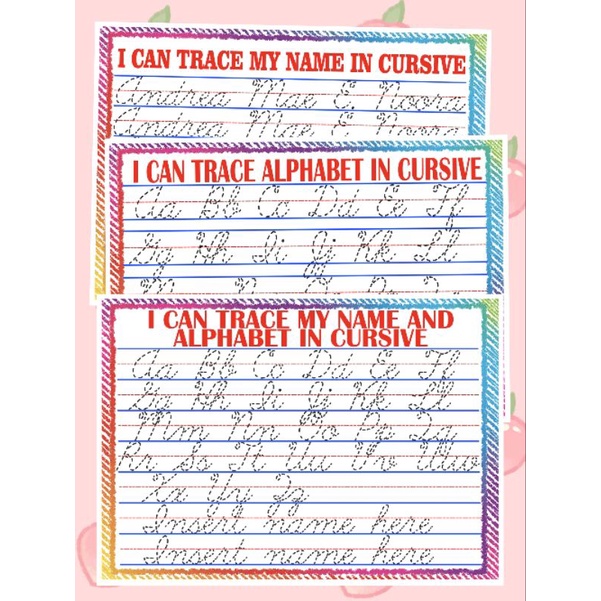 I CAN TRACE MY NAME IN CURSIVE
Andrea Mae E Noora
Andrea Mae E Noora
I CAN TRACE ALPHABET IN CURSIVE
Aa Bb Cc Dd Ee Ff
Gg Hh Ii Jj Kk Ll
I CAN TRACE MY NAME AND
ALPHABET IN CURSIVE
Aa Bb Cc Dd Ee Ff
Gg Hh Ii Jj Kk Ll
Mm Nn Oo Pp Qq
Rr Ss Tt Uu Vv Ww
Xx Yy Zz
Insert name here
Insert name here